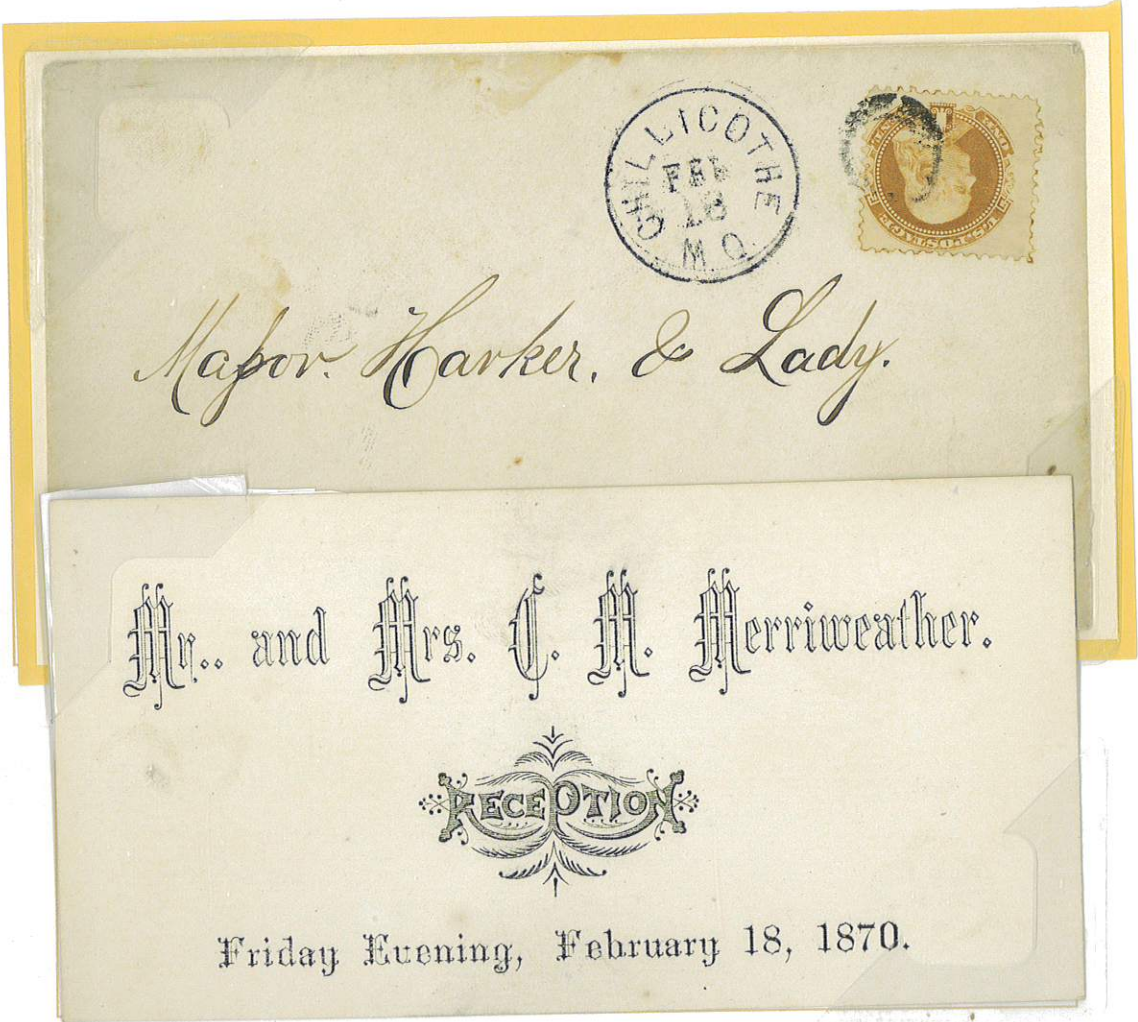 CHILLICOTHE
FEB
18
MO
U.S. POSTAGE
Major. Harker, & Lady.
Mr.. and Mrs. C. M. Merriweather.
RECEPTION
Friday Evening, February 18, 1870.